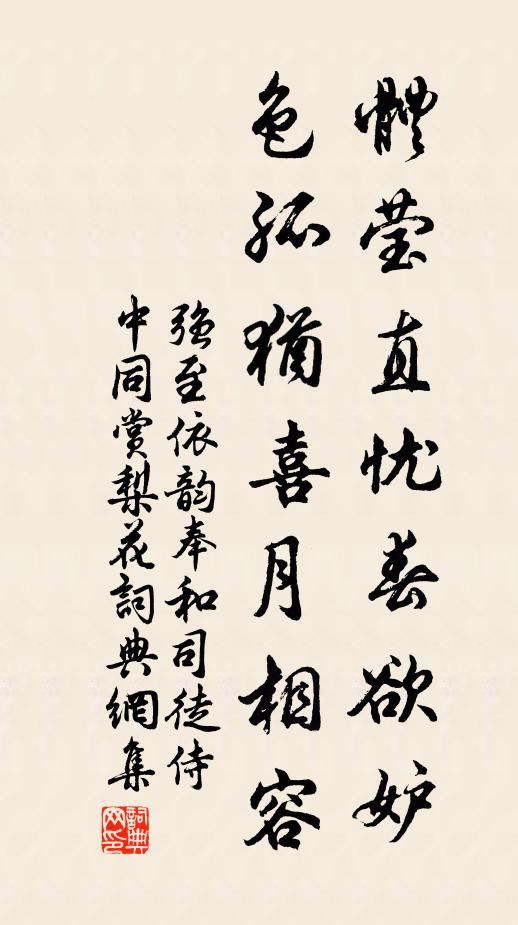 體莹直忧春欲妒
色孤猶喜月相容
强至依韵奉和司徒侍
中同赏梨花詞典網集
詞典网印